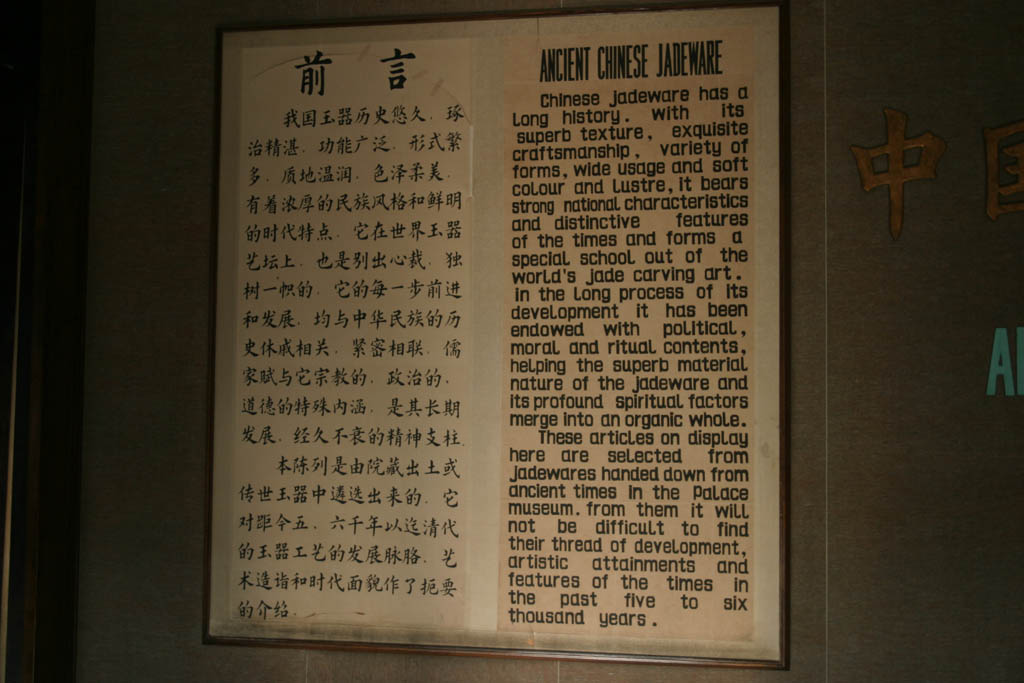 前 言
我国玉器历史悠久．琢
治精湛．功能广泛．形式繁
多．质地温润．色泽柔美．
有着浓厚的民族风格和鲜明
的时代特点．它在世界玉器
艺坛上．也是别出心裁．独
树一帜的．它的每一步前进
和发展．均与中华民族的历
史休戚相关．紧密相联．儒
家赋与它宗教的．政治的．
道德的特殊内涵．是其长期
发展．经久不衰的精神支柱．
本陈列是由院藏出土或
传世玉器中遴选出来的．它
对距今五．六千年以迄清代
的玉器工艺的发展脉胳．艺
术造诣和时代面貌作了扼要
的介绍．
ANCIENT CHINESE JADEWARE
Chinese jadeware has a
long history. With its
superb texture, exquisite
craftsmanship, variety of
forms, wide usage and soft
colour and lustre, it bears
strong national characteristics
and distinctive features
of the times and forms a
special school out of the
world's jade carving art.
In the long process of its
development it has been
endowed with political,
moral and ritual contents,
helping the superb material
nature of the jadeware and
its profound spiritual factors
merge into an organic whole.
These articles on display
here are selected from
jadewares handed down from
ancient times in the Palace
museum. from them it will
not be difficult to find
their thread of development,
artistic attainments and
features of the times in
the past five to six
thousand years.
中国